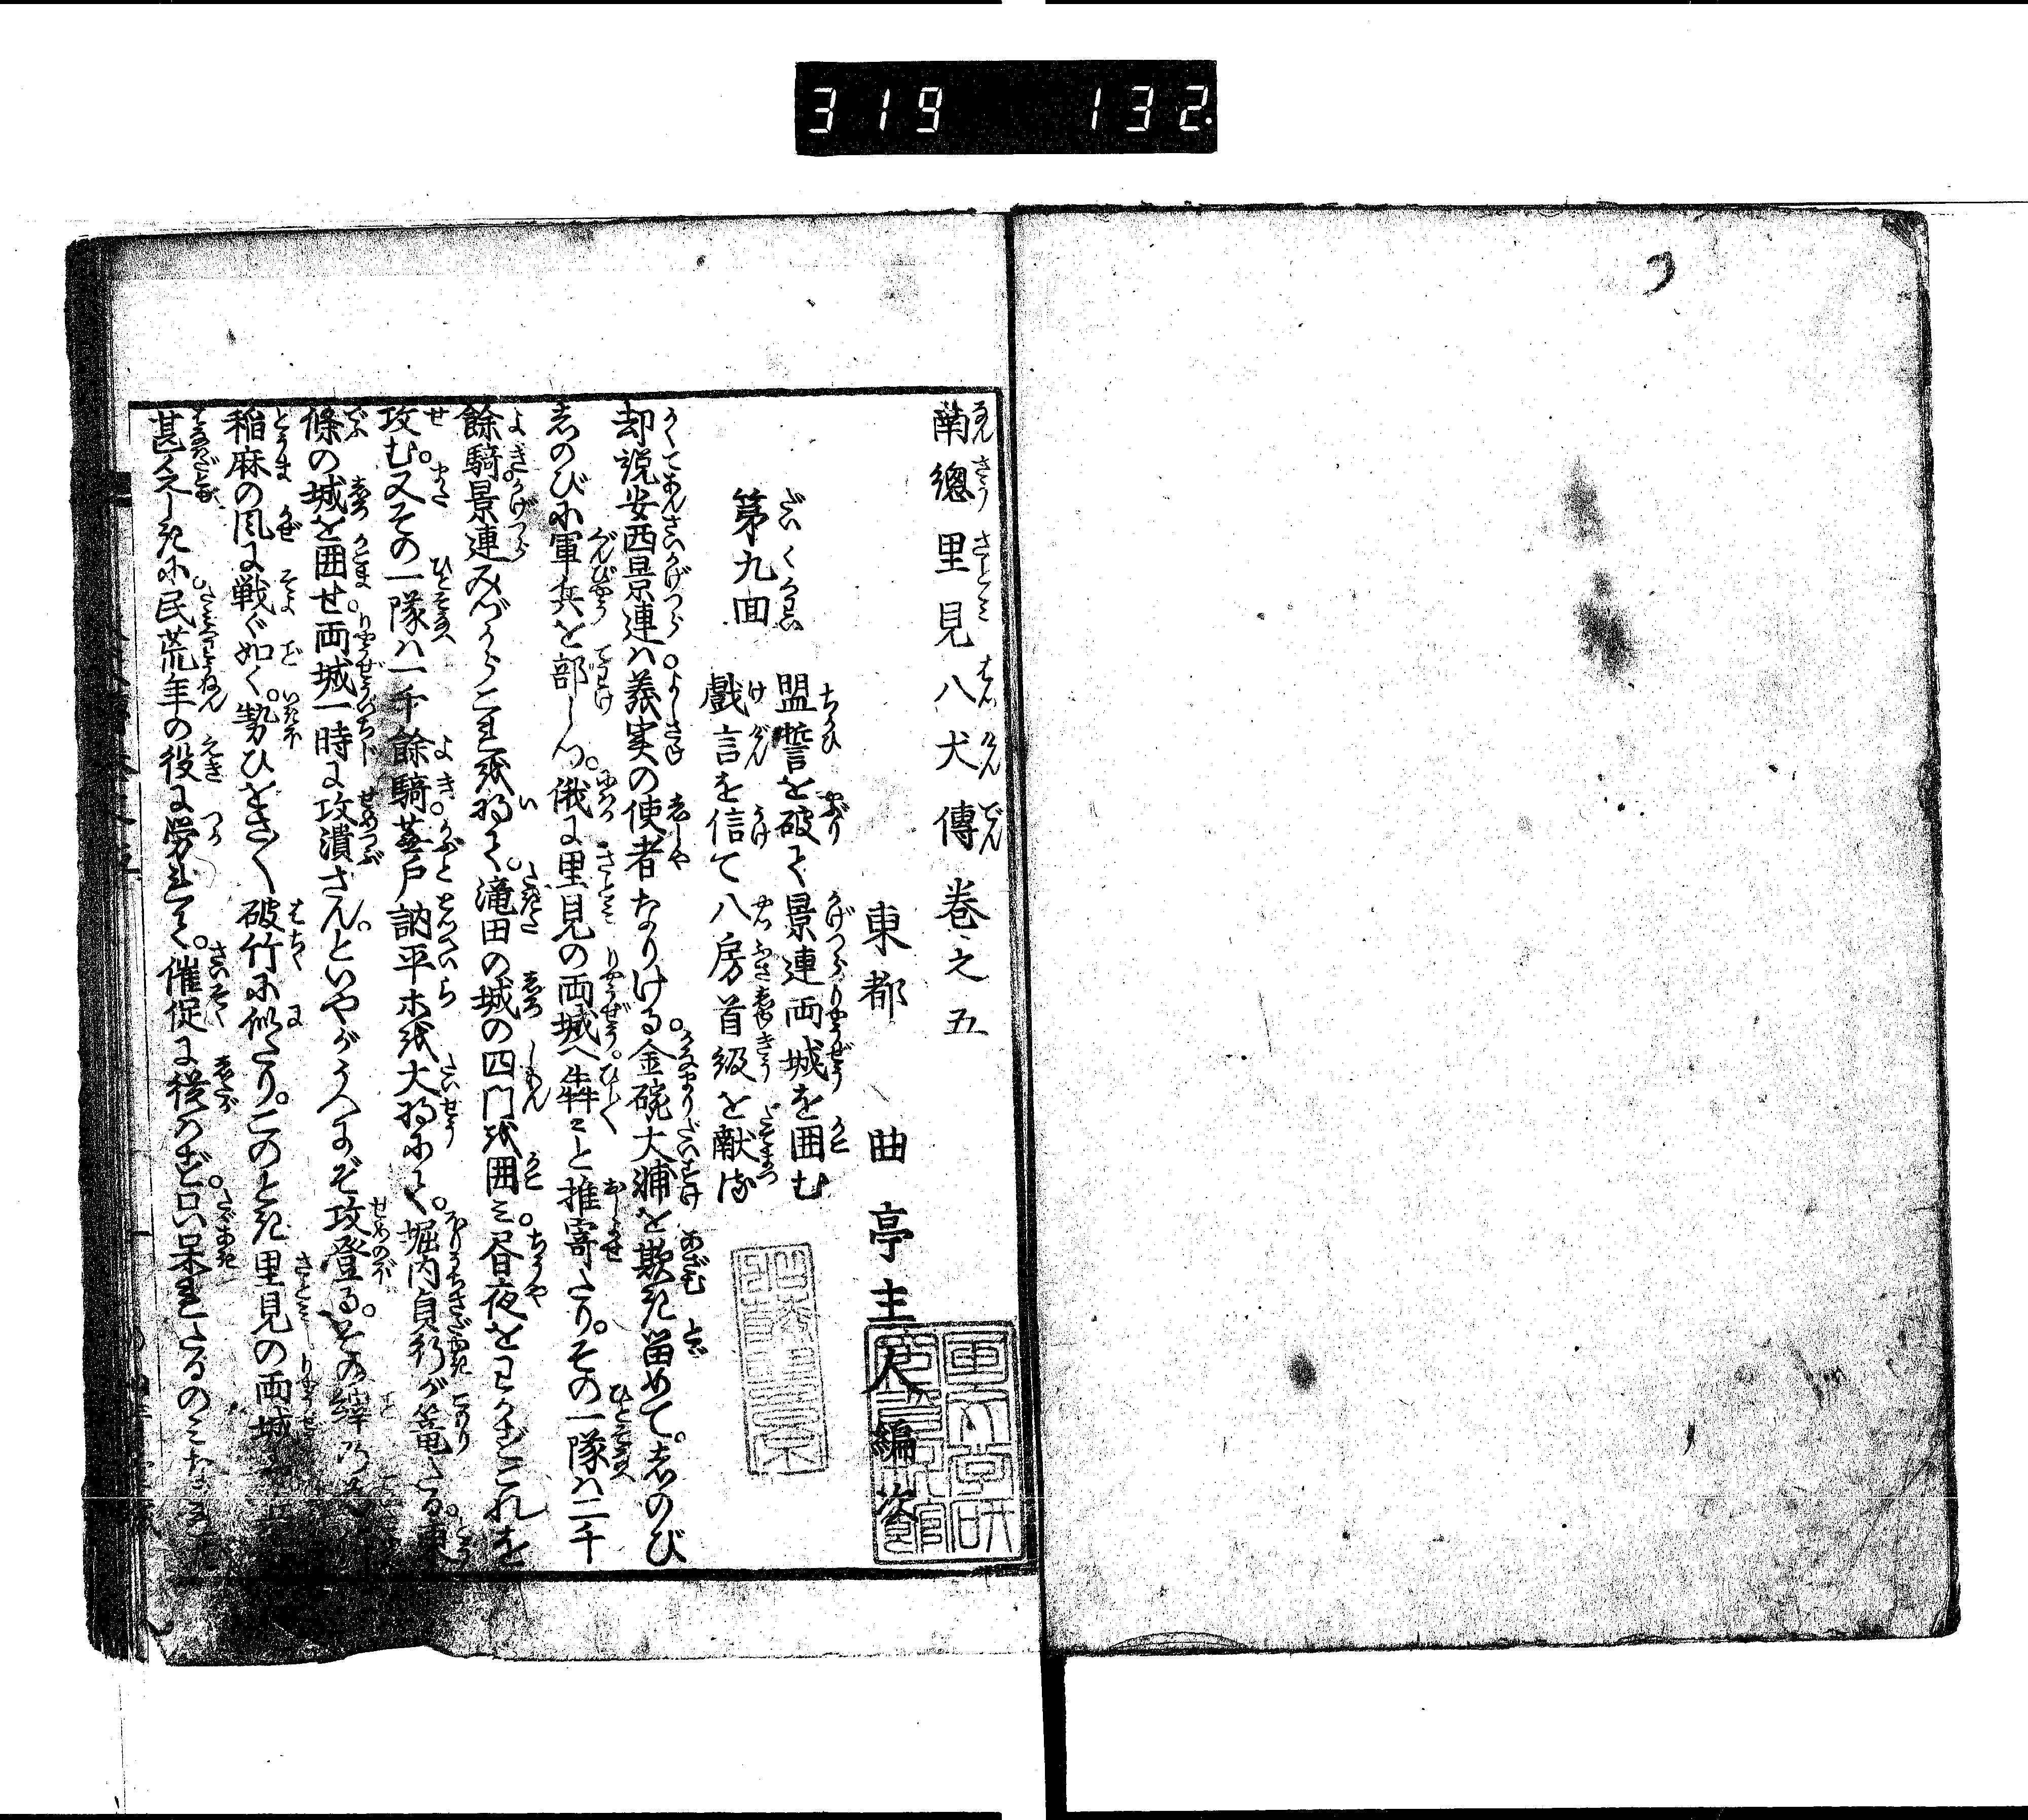 319 132
南總里見八犬傳巻之五
東都 曲亭主人編次
第九囬
盟誓を破て景連両城を囲む
戯言を信て八房首級を献る
却説安西景連ハ義実の使者なりける。金碗大浦を欺き畄めて。しのび
しのびに軍兵を部しつ。俄に里見の両城へ犇〻と推寄たり。その一隊ハ二千
餘騎景連みづからこれを将て。滝田の城の四門を囲ミ。昼夜をわかずこれを
攻む。又その一隊ハ一千餘騎蕪戸訥平ホを大将にて。堀内貞行が篭たる。東
條の城を囲せ両城一時に攻潰さんといやがうへにぞ攻登る。その縡の
稲麻の風に戦ぐ如く。勢ひをさ〳〵破竹に似たり。このとき里見の両城
甚乏しきに民荒年の役に労れて。催促に従はず。只呆れたるのミ